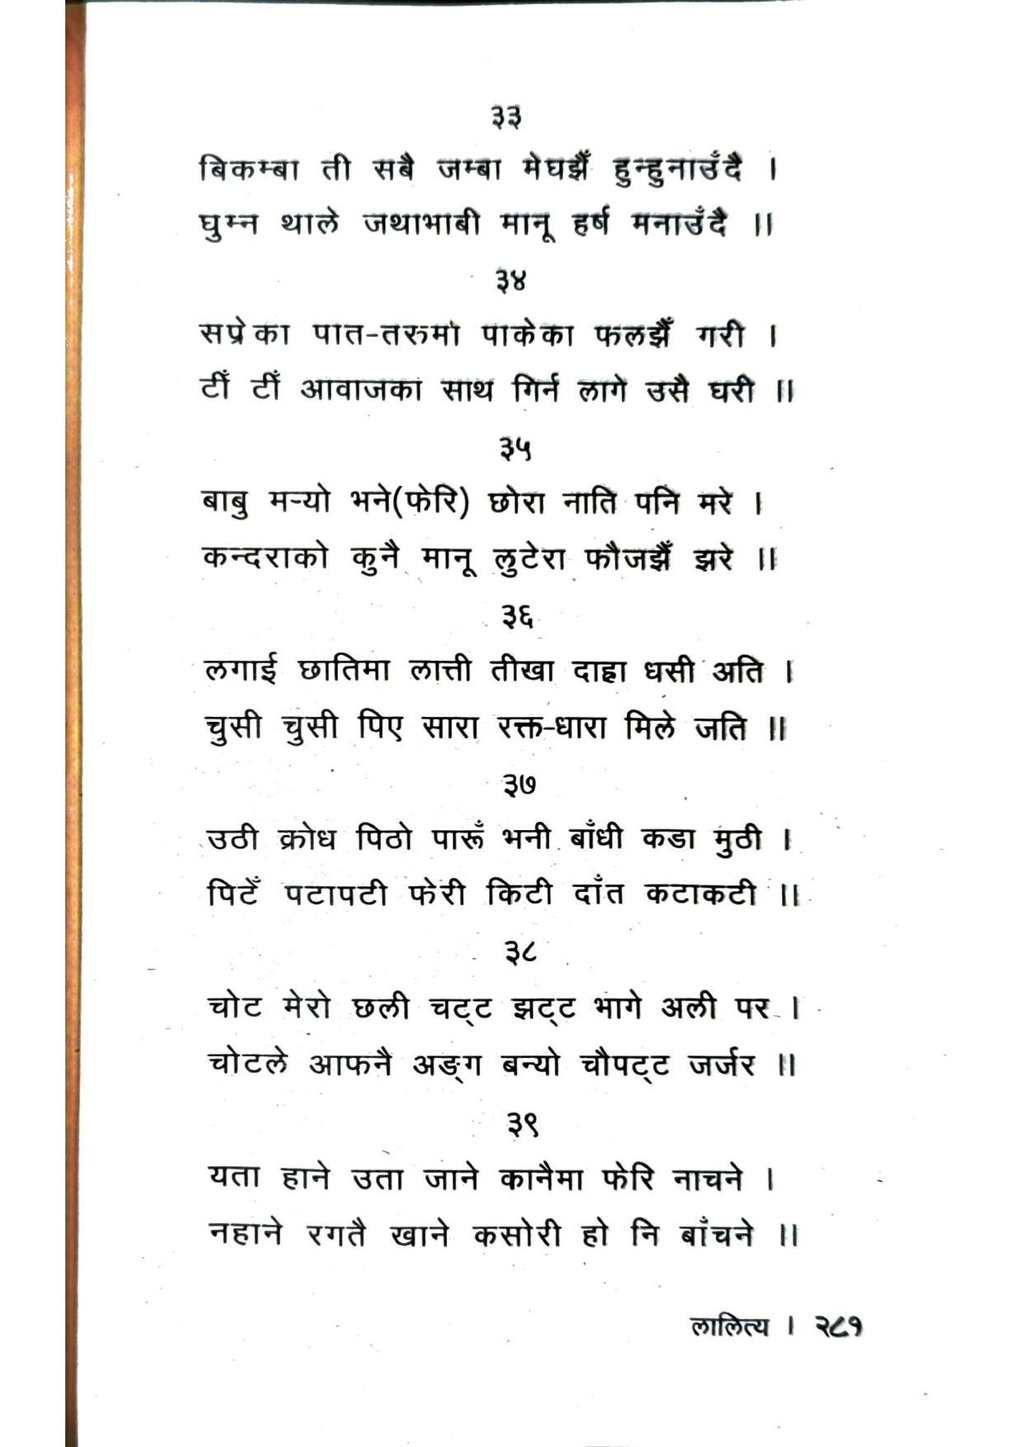 ३३
बिकम्बा ती सबै जम्बा मेघझैँ हुन्हुनाउँदै ।
घुम्न थाले जथाभाबी मानू हर्ष मनाउँदै ॥
३४
सप्रेका पात-तरुमा पाकेका फलझैँ गरी ।
टीँ टीँ आवाजका साथ गिर्न लागे उसै घरी ॥
३५
बाबु मऱ्यो भने(फेरि) छोरा नाति पनि मरे ।
कन्दराको कुनै मानू लुटेरा फौजझैँ झरे ॥
३६
लगाई छातिमा लात्ती तीखा दाह्रा धसी अति ।
चुसी चुसी पिए सारा रक्त-धारा मिले जति ॥
३७
उठी क्रोध पिठो पारूँ भनी बाँधी कडा मुठी ।
पिटेँ पटापटी फेरी किटी दाँत कटाकटी ॥
३८
चोट मेरो छली चट्ट झट्ट भागे अली पर ।
चोटले आफनै अङ्ग बन्यो चौपट्ट जर्जर ॥
३९
यता हाने उता जाने कानैमा फेरि नाचने ।
नहाने रगतै खाने कसोरी हो नि बाँचने ॥
लालित्य । २८१